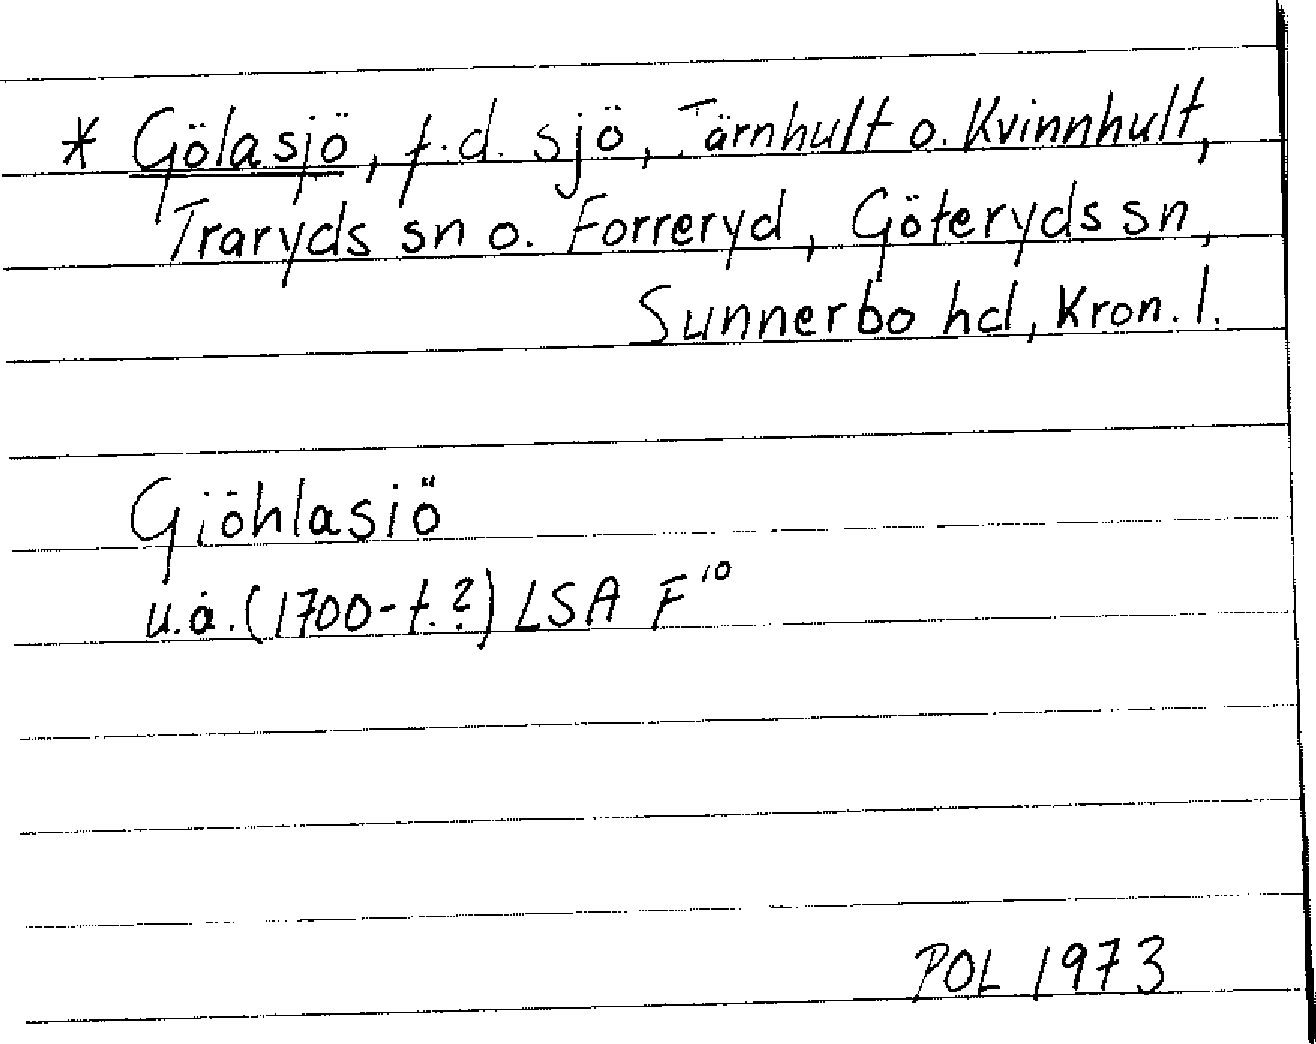 * Gölasjö, f.d. sjö, Tärnhult o. Kvinnhult,
Traryds sn o. Forreryd, Göteryds sn,
Sunnerbo hd, Kron. l.
Giöhlasiö
u.å. (1700-t.?) LSA F 10
POL 1973